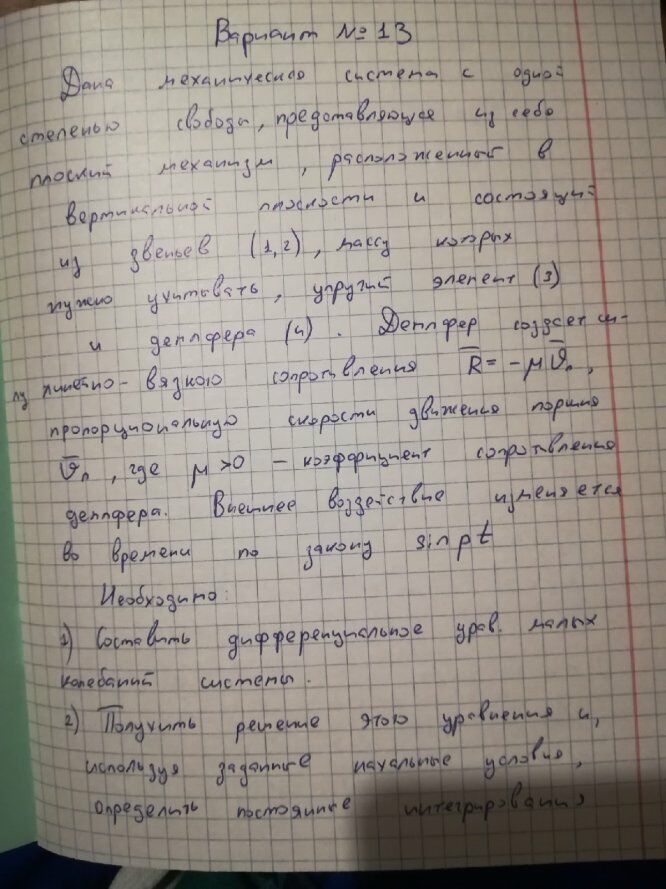 Вариант № 13
Дана механическая система с одной
степенью свободы, представляющая из себя
плоский механизм, расположенный в
вертикальной плоскости и состоящий
из звеньев (1,2), массу которых
нужно учитывать, упругий элемент (3)
и демпфера (4). Демпфер создает си-
лу линейно-вязкого сопротивления R̅ = -μV̅п,
пропорциональную скорости движения поршня
V̅п, где μ>0 - коэффициент сопротивления
демпфера. Внешнее воздействие изменяется
во времени по закону sin pt
Необходимо:
1) Составить дифференциальное урав. малых
колебаний системы.
2) Получить решение этого уравнения и,
используя заданные начальные условия,
определить постоянные интегрирования